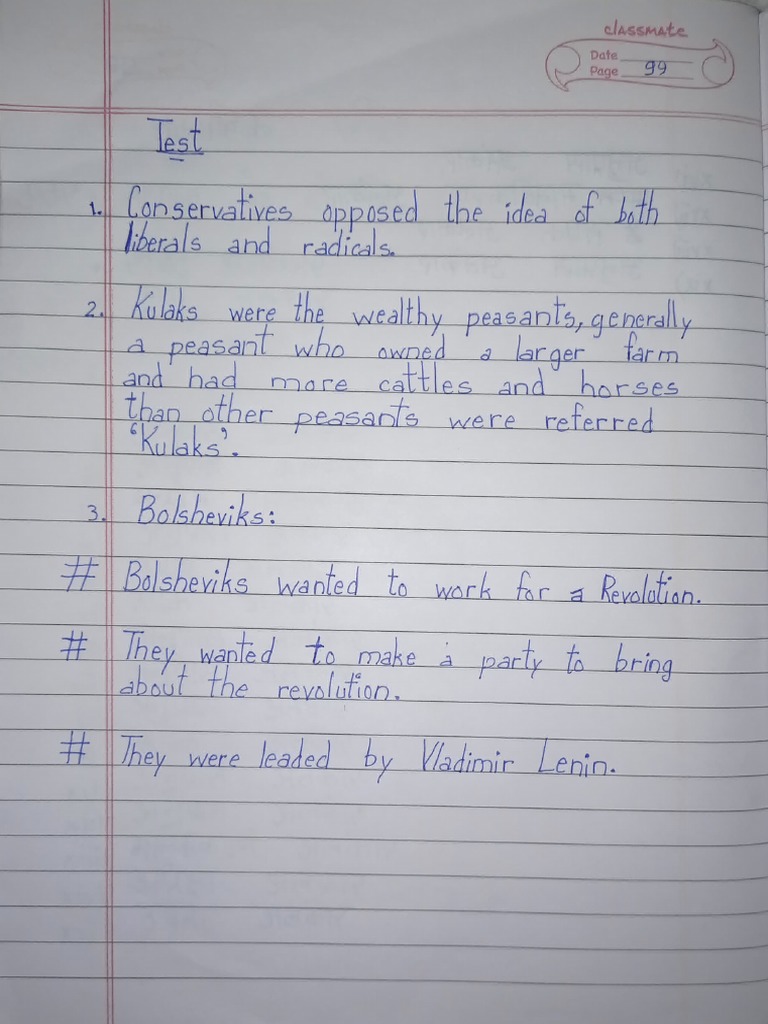 classmate
Date
Page 99
Test
1. Conservatives opposed the idea of both
liberals and radicals.
2. Kulaks were the wealthy peasants, generally
a peasant who owned a larger farm
and had more cattles and horses
than other peasants were referred
'Kulaks'.
3. Bolsheviks:
# Bolsheviks wanted to work for a Revolution.
# They wanted to make a party to bring
about the revolution.
# They were leaded by Vladimir Lenin.